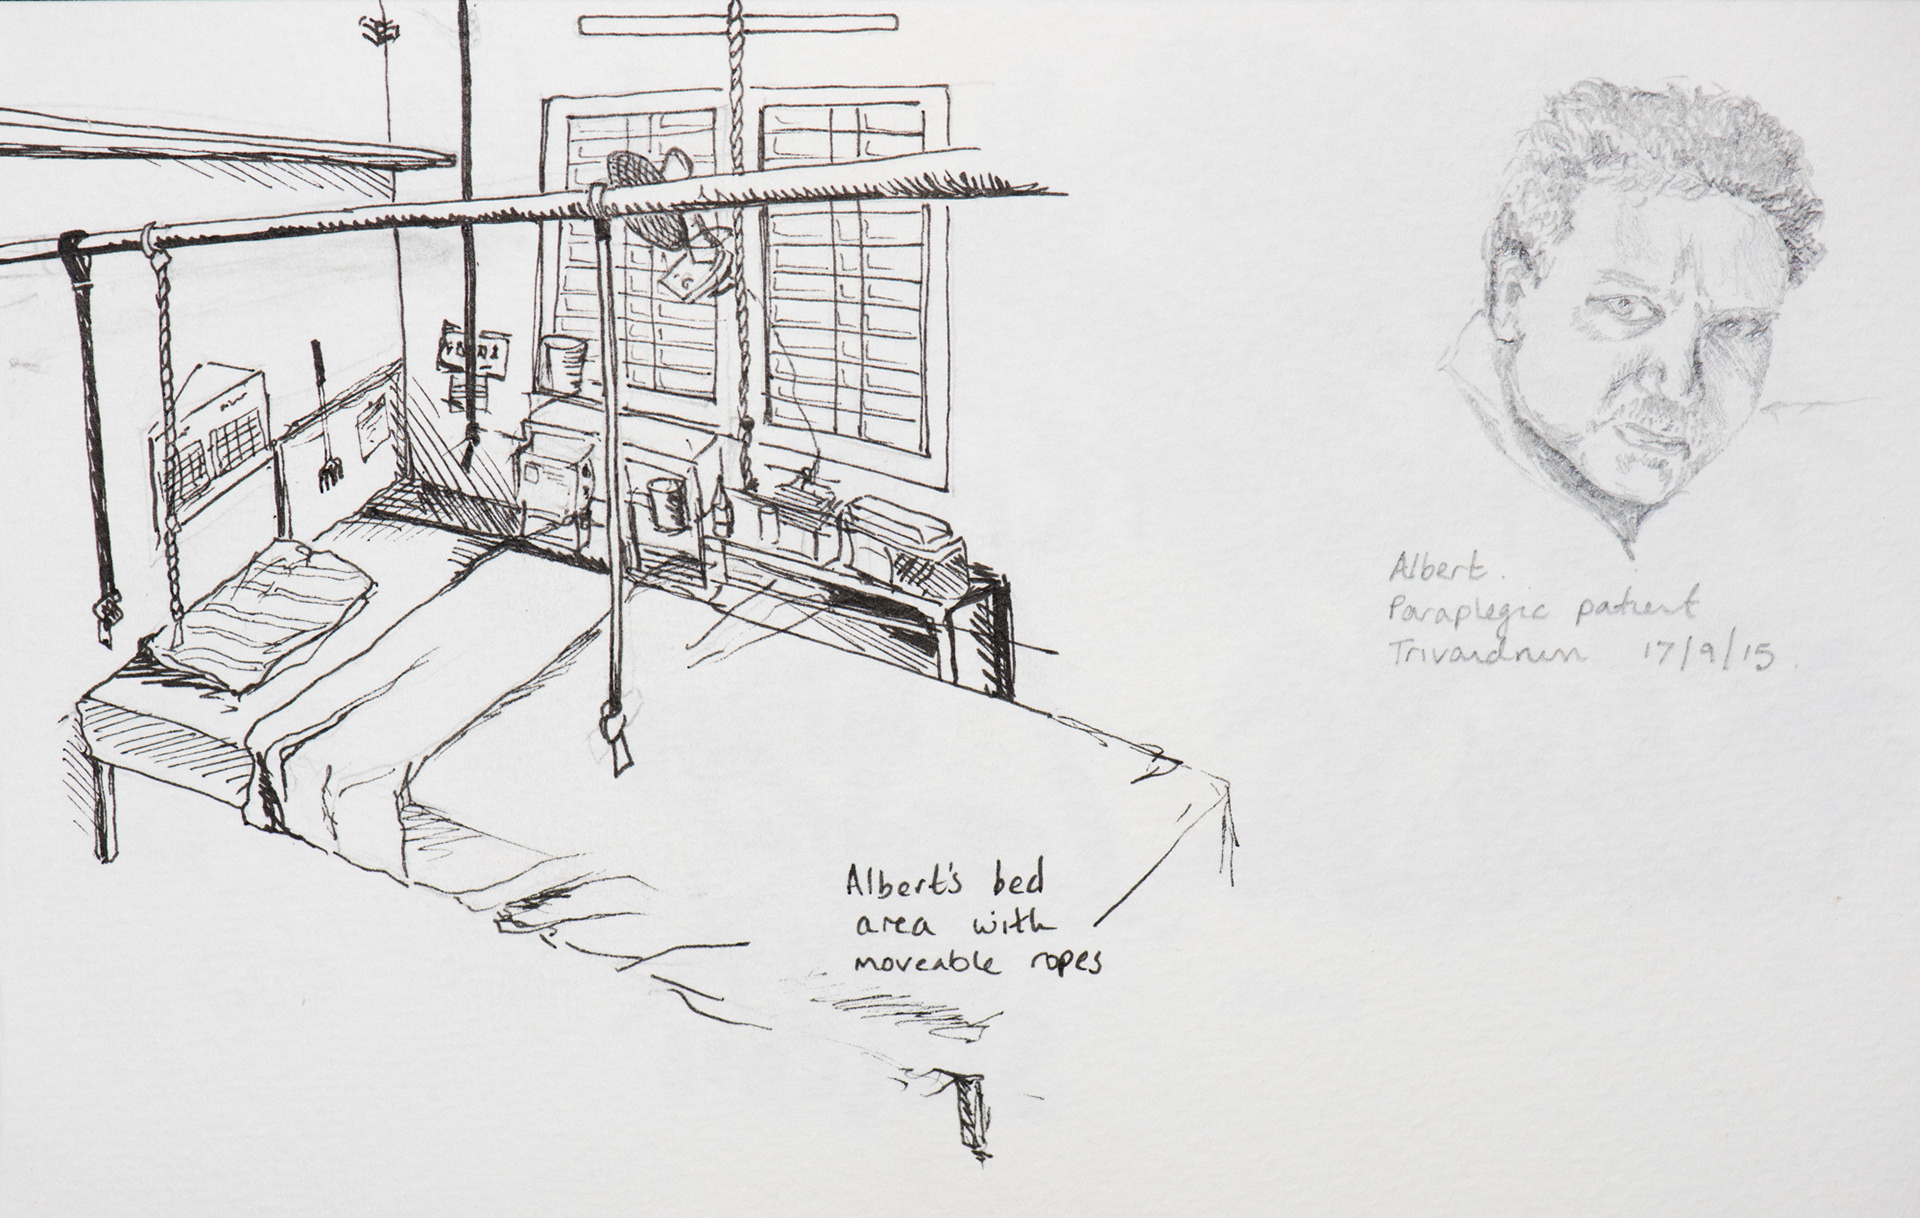 Albert's bed
area with
moveable ropes
Albert.
Paraplegic patient
Trivandrum 17/9/15